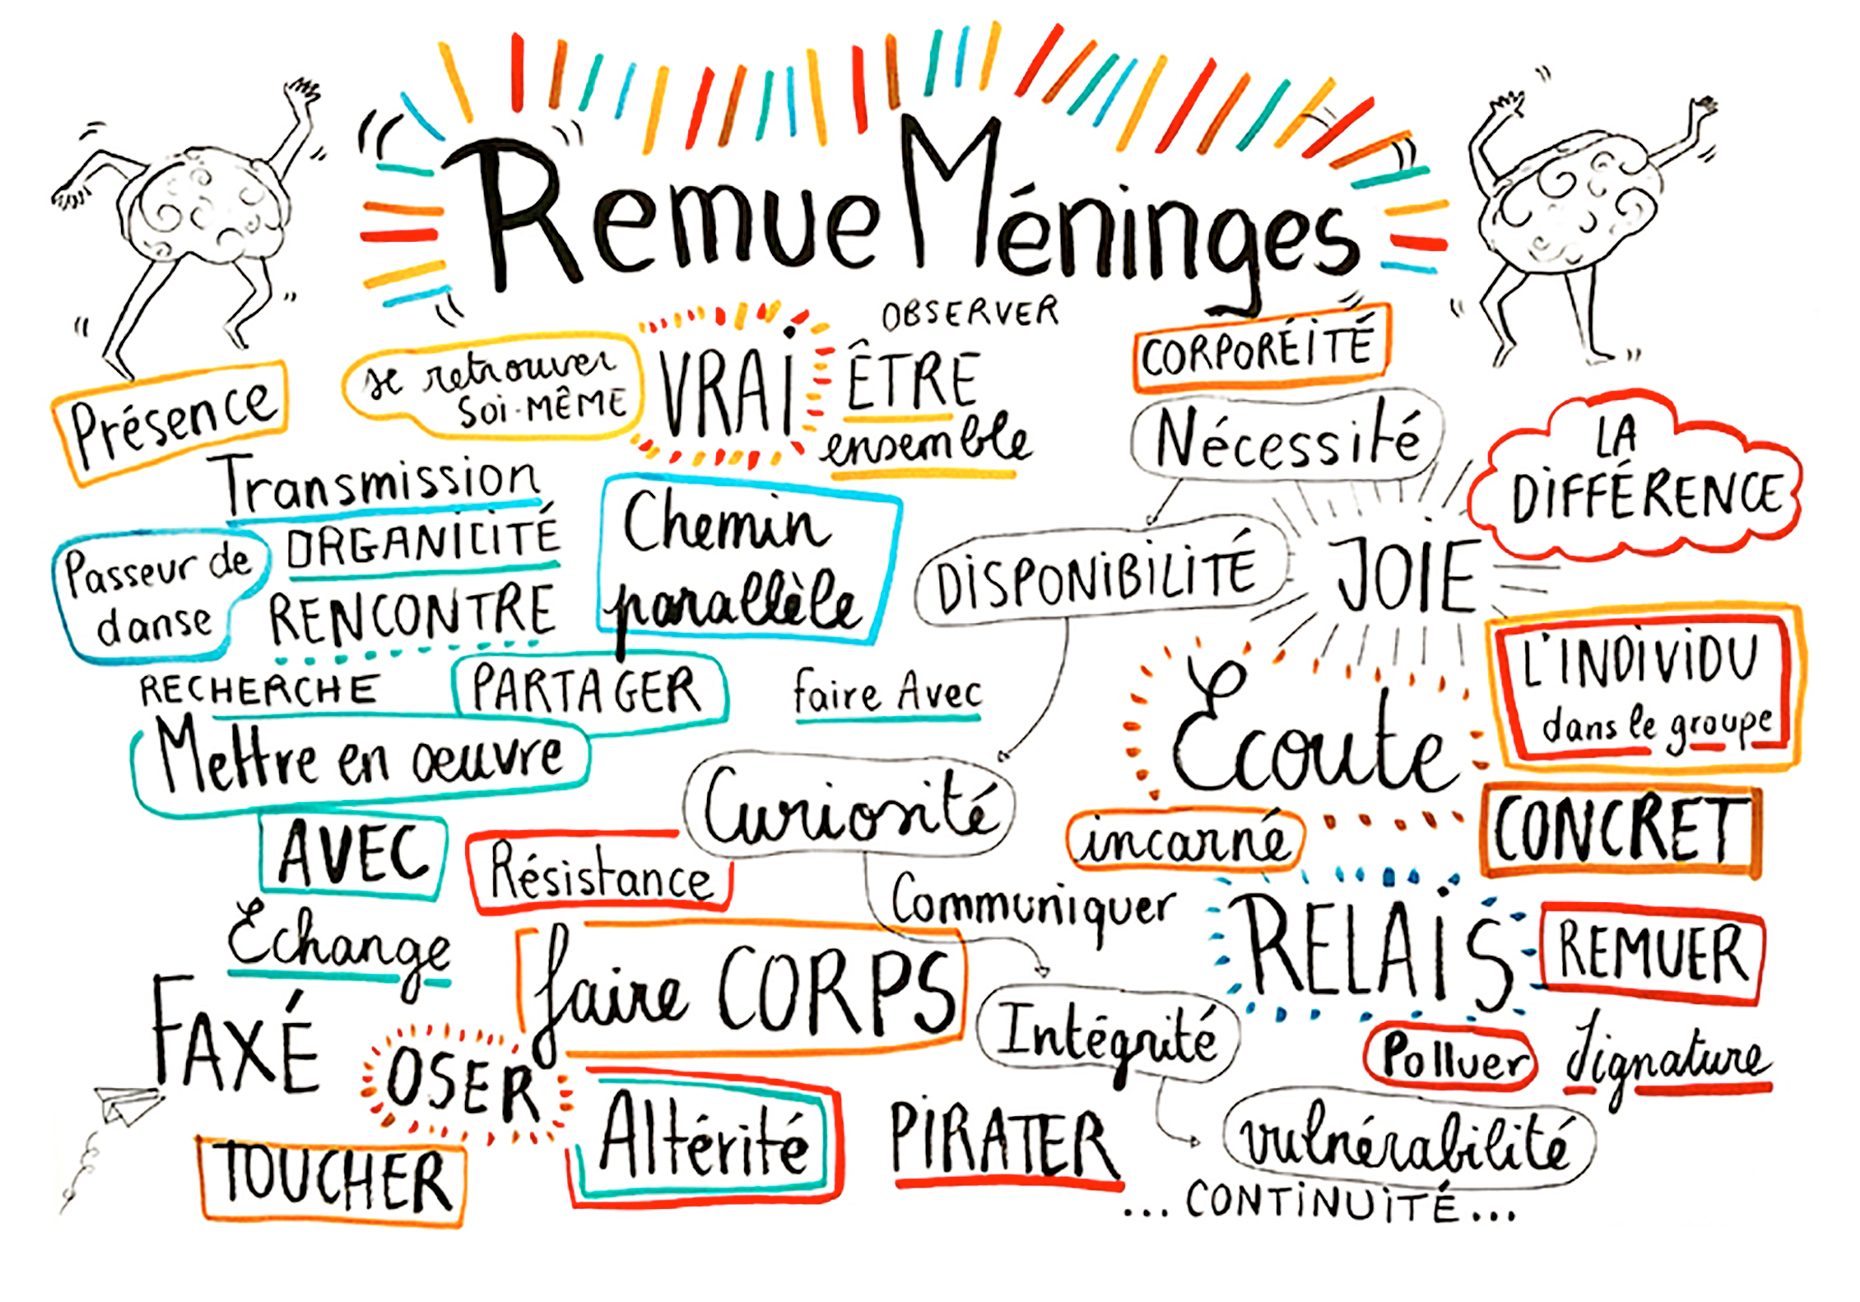 Remue Méninges
OBSERVER
CORPORÉITÉ
Présence
se retrouver
soi-MÊME
VRAI
ÊTRE
ensemble
Nécessité
LA
DIFFÉRENCE
Transmission
ORGANICITÉ
RENCONTRE
Passeur de
danse
Chemin
parallèle
DISPONIBILITÉ
JOIE
L'INDIVIDU
dans le groupe
RECHERCHE
PARTAGER
faire Avec
Écoute
Mettre en œuvre
Curiosité
incarné
CONCRET
AVEC
Résistance
Communiquer
RELAIS
REMUER
Échange
faire CORPS
Intégrité
Polluer
Signature
FAXÉ
OSER
Altérité
PIRATER
vulnérabilité
TOUCHER
... CONTINUITÉ...